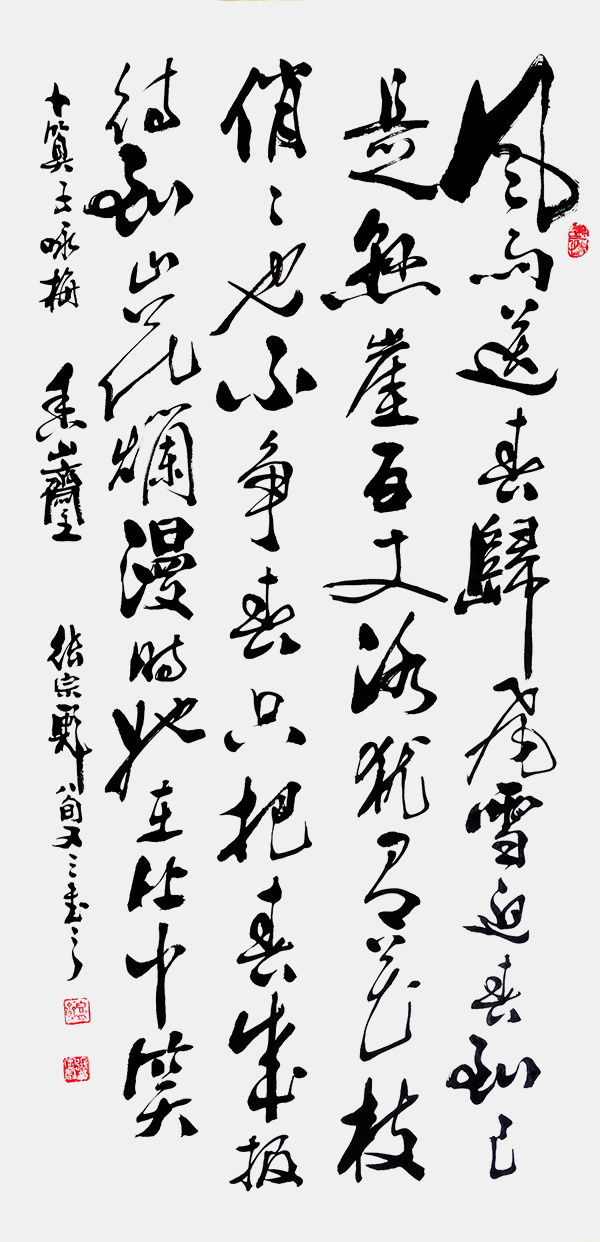 風雨送春歸飛雪迎春到已
是悬崖百丈冰犹有花枝
俏〻也不争春只把春来报
待到山花爛漫時她在丛中笑
卜算子咏梅 山齋主 張宗 八旬又三書之